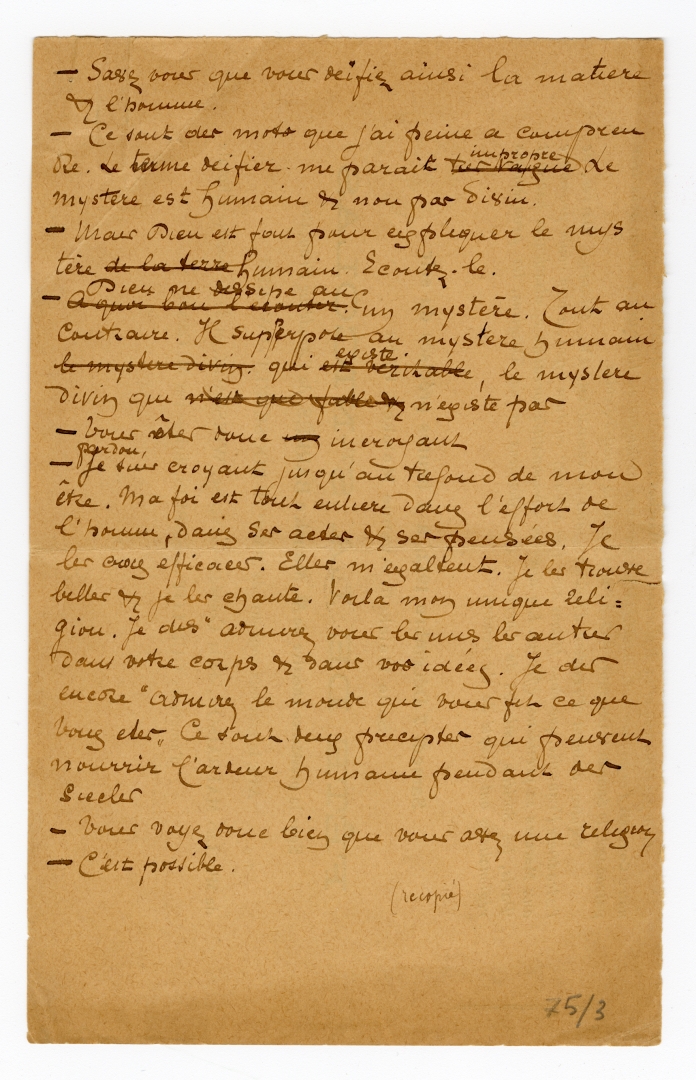 — Savez vous que vous deifiez ainsi la matiere
& l'homme.
— Ce sont des mots que j'ai peine a compren
dre. Le terme deifier me parait tres vague impropre Le
mystere est humain & non pas divin.
— Mais Dieu est fait pour expliquer le mys
tère de la terre humain. Ecoutez-le.
— A quoi bon l'écouter. Dieu ne dissipe aucun mystère. Tout au
contraire. Il superpose au mystere humain
le mystere divin. qui est veritable existe, le mystere
divin que n'est que fable & n'existe pas
— Vous êtes donc un incroyant
— pardon, Je suis croyant jusqu'au trefond de mon
être. Ma foi est tout entiere dans l'effort de
l'homme, dans ses actes & ses pensées. Je
les crois efficaces. Elles m'exaltent. Je les trouve
belles & je les chante. Voila mon unique reli=
gion. Je dis "admirez vous les uns les autres
dans votre corps & dans vos idées. Je dis
encore "admirez le monde qui vous fit ce que
vous etes„ Ce sont deux preceptes qui peuvent
nourrir l'ardeur humaine pendant des
siecles
— Vous voyez donc bien que vous avez une religion
— C'est possible.
(recopié)
75/3